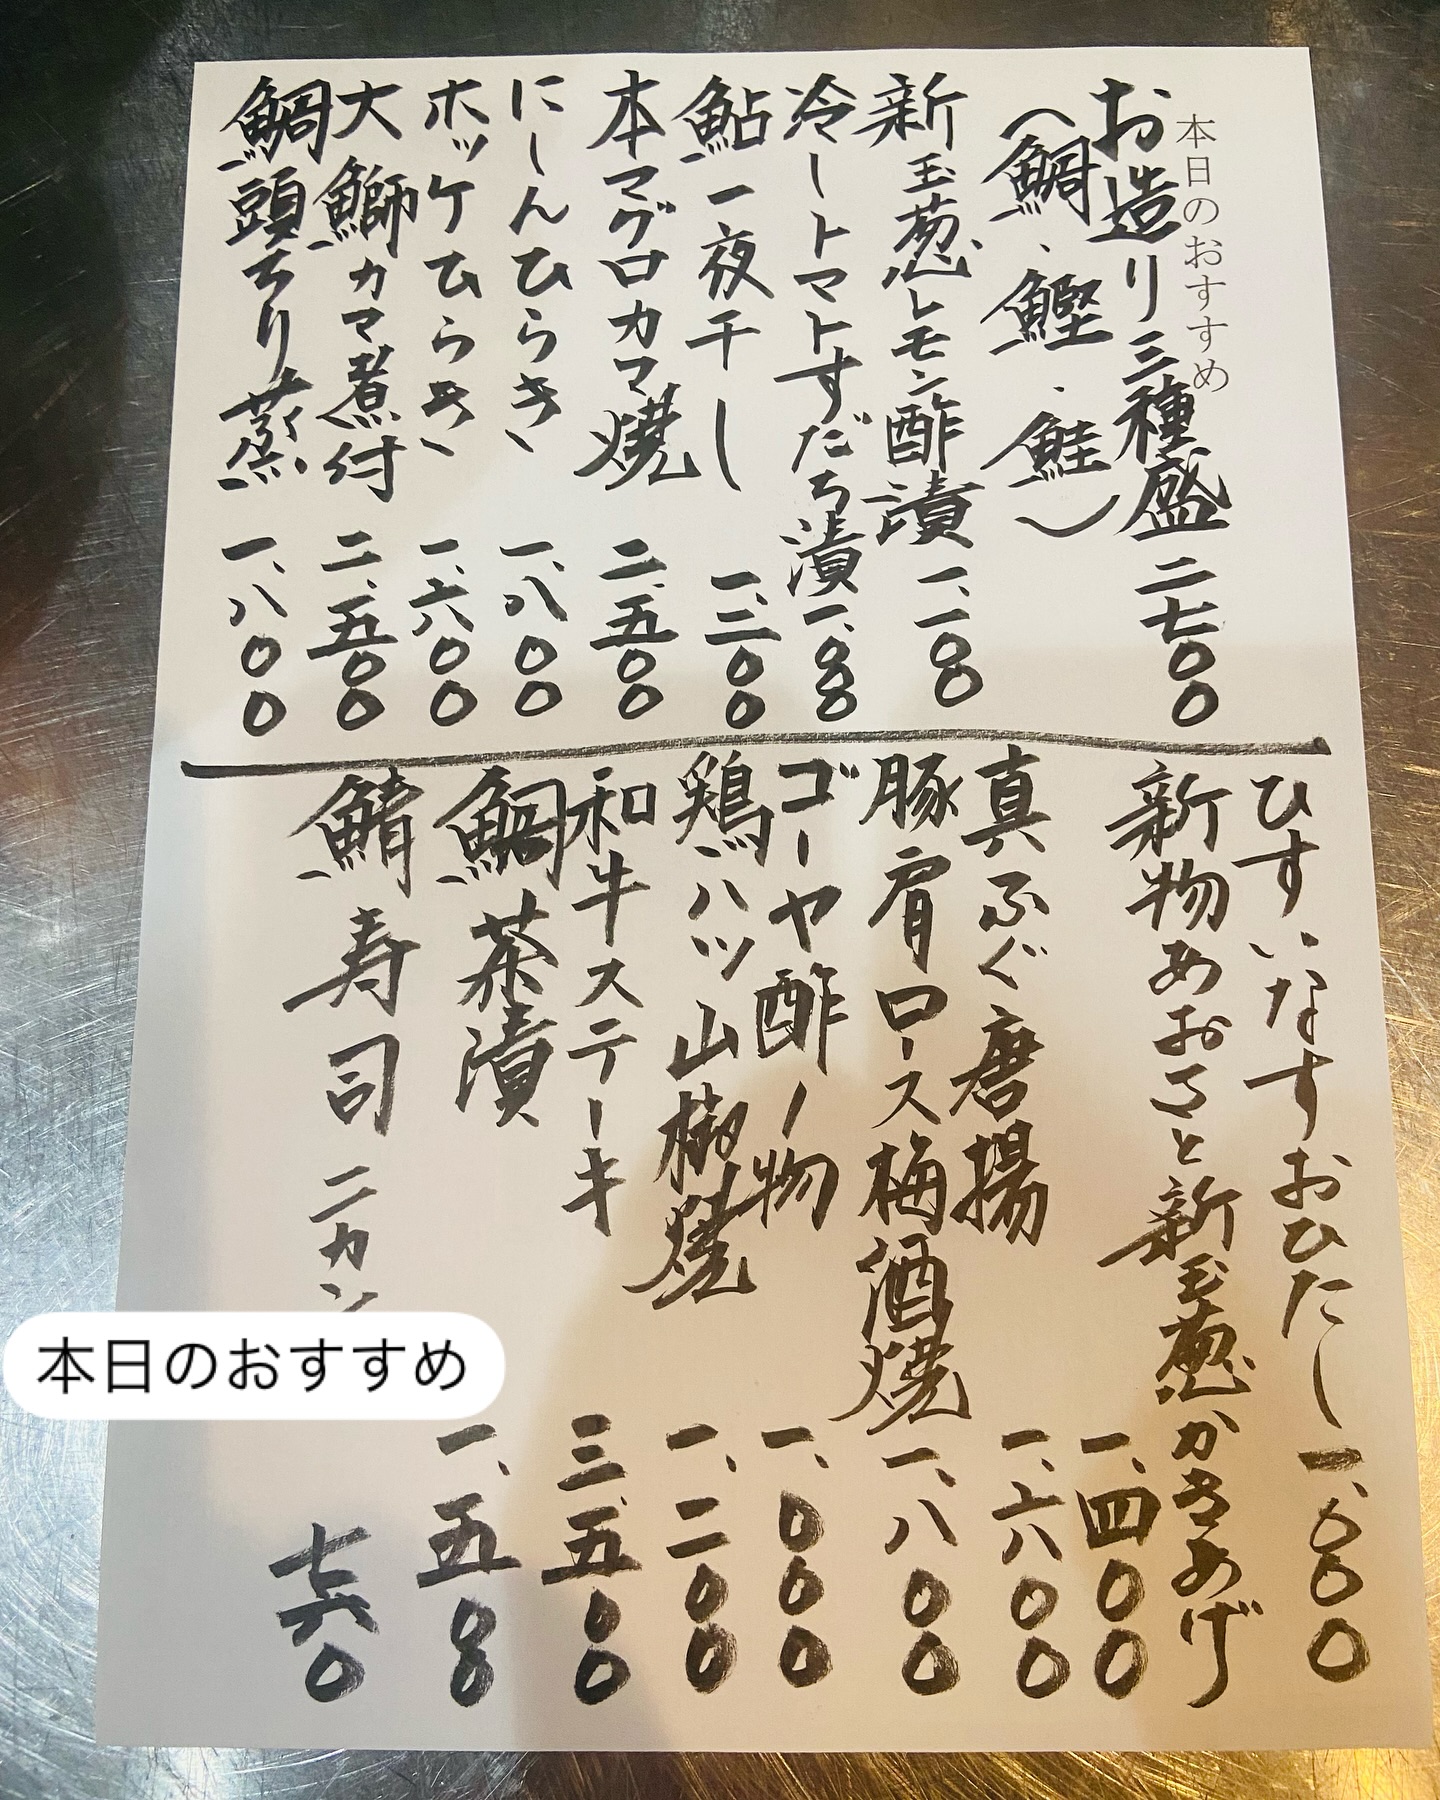 本日のおすすめ
お造り三種盛 二七〇〇
(鯛、鰹、鮭)
新玉葱レモン酢漬 一、一〇〇
冷しトマトすだち漬 一、〇〇〇
鮎一夜干し 一、二〇〇
本マグロカマ焼 二、五〇〇
にしんひらき 一、八〇〇
ホッケひらき 一、六〇〇
大鰤カマ煮付 二、五〇〇
鯛頭ちり蒸 一、八〇〇
ひすいなすおひたし 一、〇〇〇
新物あおさと新玉葱かきあげ 一、四〇〇
真ふぐ唐揚 一、六〇〇
豚肩ロース梅酒焼 一、八〇〇
ゴーヤ酢ノ物 一、〇〇〇
鶏ハツ山椒焼 一、二〇〇
和牛ステーキ 三、五〇〇
鯛茶漬 一、五〇〇
鯖寿司 二カン 七六〇
本日のおすすめ